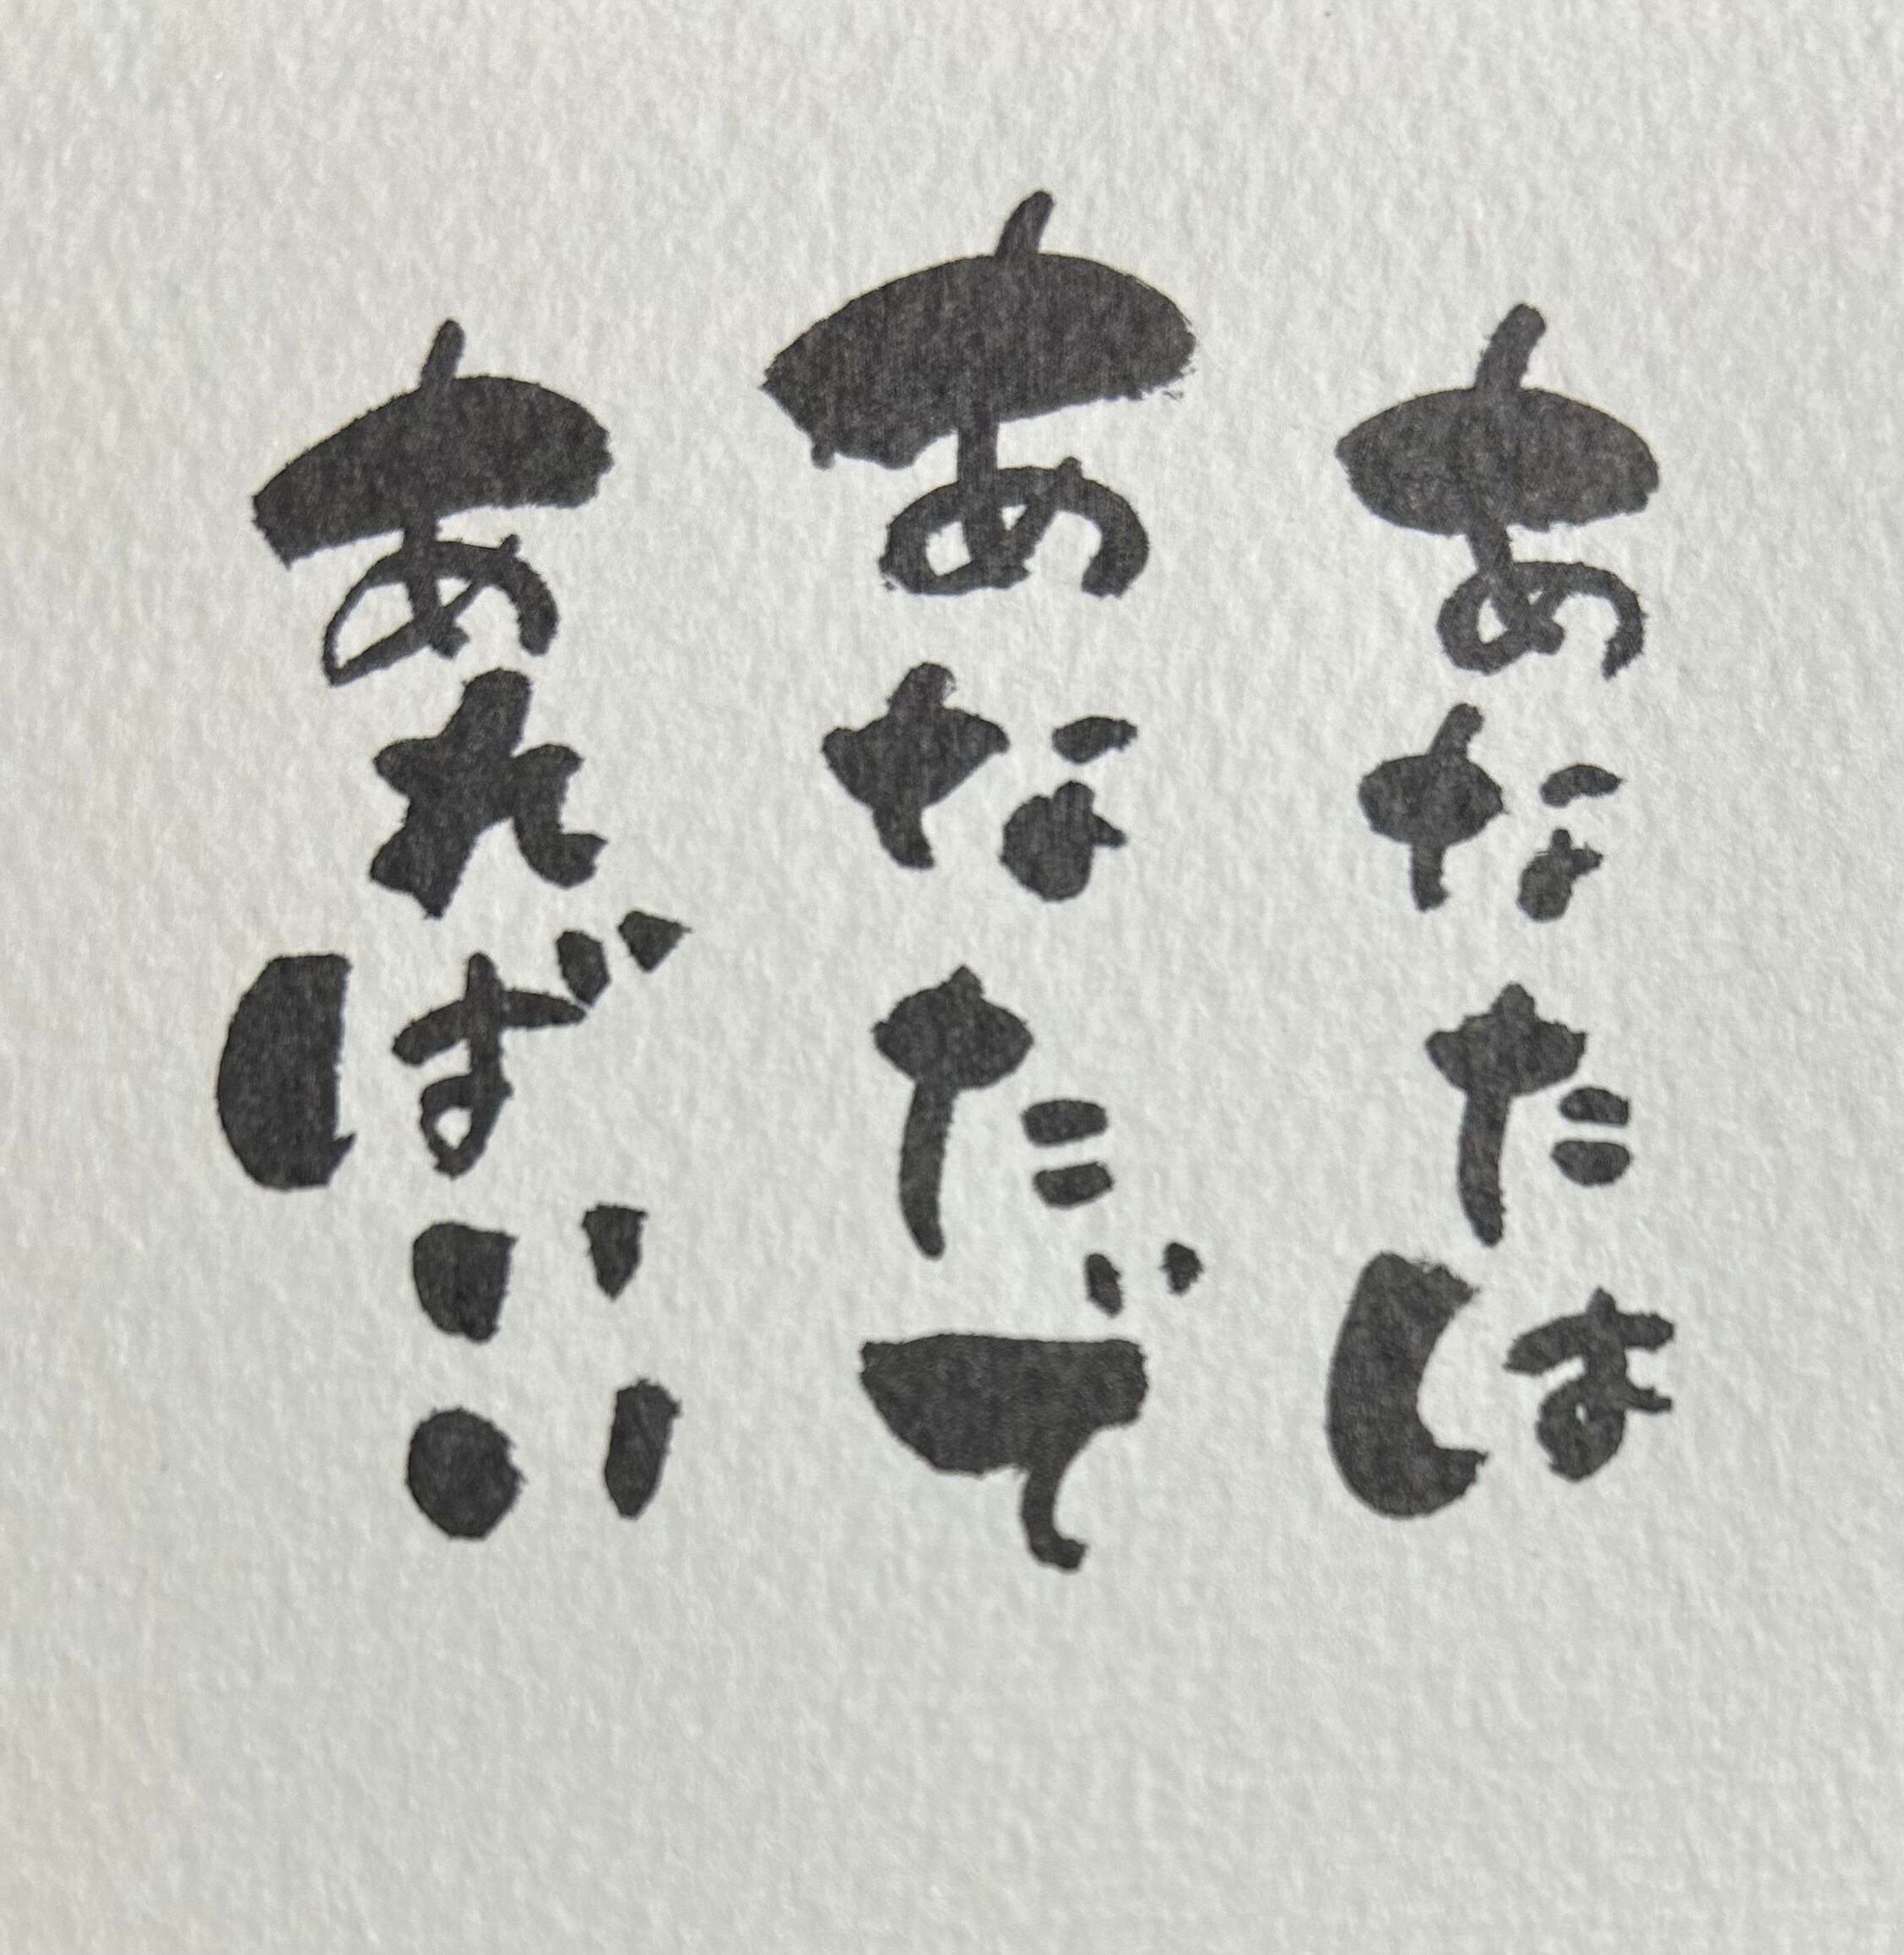 あなたは
あなたで
あればいい